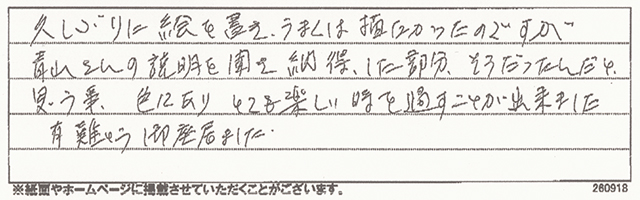 久しぶりに絵を書き、うまくは描けなかったのですが
青山さんの説明を聞き納得、した部分、そうだったんだと、
思う事、色々あり とても楽しい時を過すことが出来ました
有難う御座居ました。
※紙面やホームページに掲載させていただくことがございます。 260918